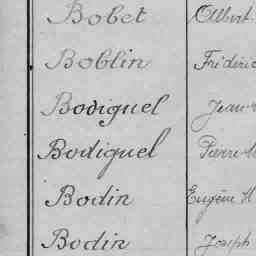 Bobet Albert
Boblin Frédéric
Bodiguel Jean
Bodiguel Pierre M
Bodin Eugène H
Bodin Joseph